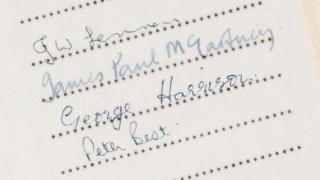 J W Lennon
James Paul McCartney
George Harrison.
Peter Best.